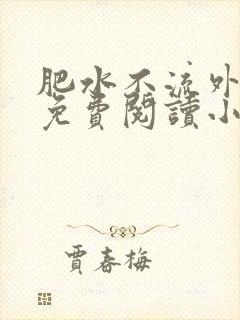 肥水不流外
免費閱讀小
賈春梅